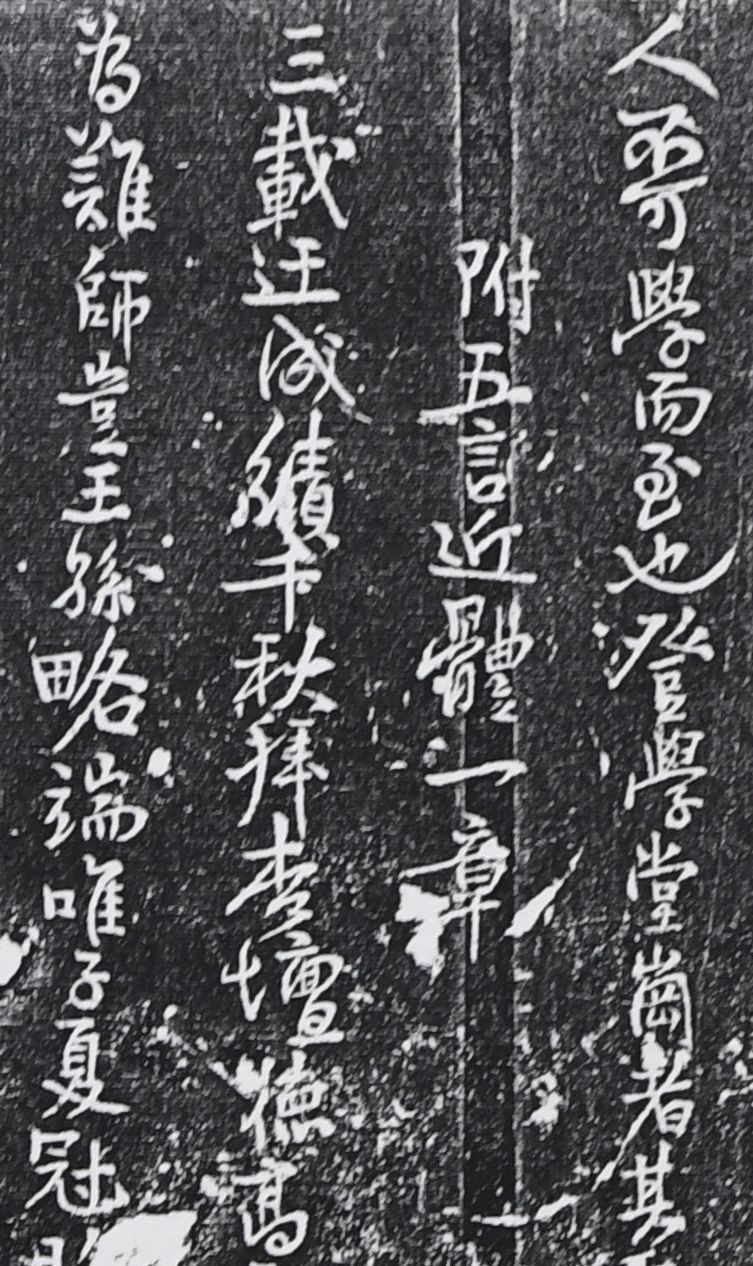 人可學而至也登學堂崗者其
附五言近體一章
三載匡成績千秋拜杏壇德高
為難師豈王孫略端唯子夏冠